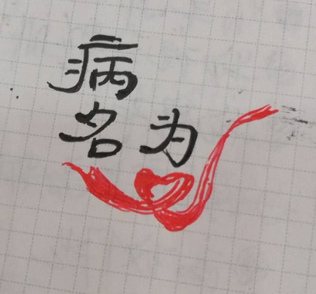 病
名为